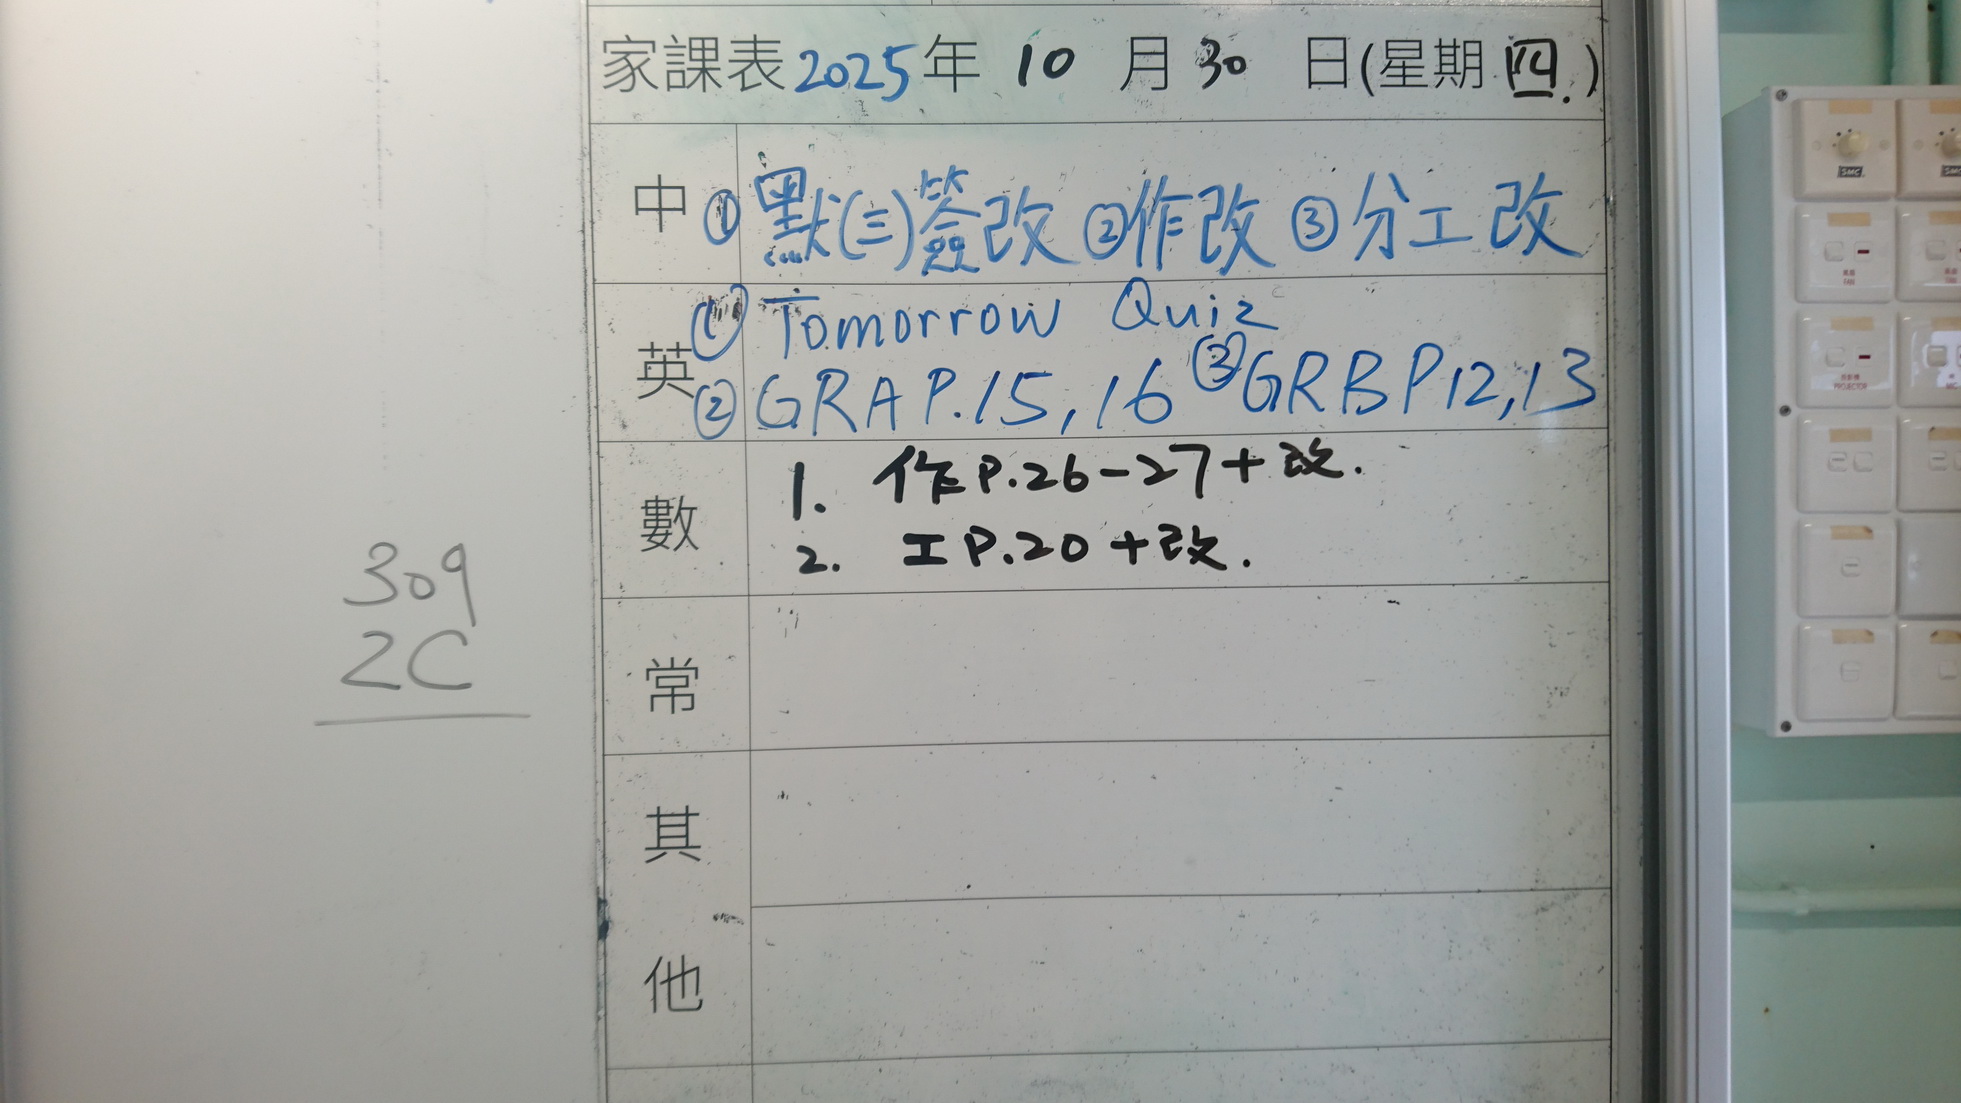 家課表2025年 10 月 30 日(星期四.)
中 ①默(三)簽改 ②作改 ③分工改
英 ① Tomorrow Quiz
② GRA P.15,16 ③GRB P12,13
數 1. 作P.26-27+改.
2. 工P.20+改.
常
其
他
309
2C
SMC
FAN
PROJECTOR